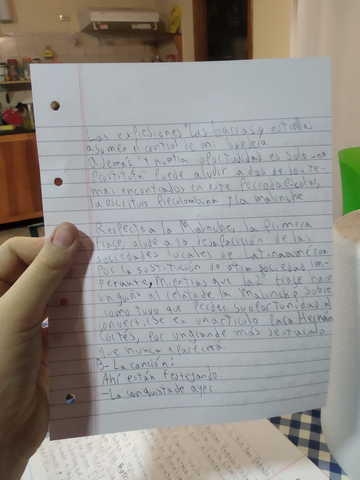 Las expresiones "las barras y estrellas
asumen el control de mi bandera
Además "y nuestra oportunidad es solo una
prostituta" puede aludir a dos de los te-
mas encontrados en este periodo escolar,
la escritois Precolombina y la malinche
Respecto a la Malinche, la primera
frace, alude a la desparición de las
sociedades locales de Latinoamérica
Por la sustitución de otra sociedad im-
perante, Mientras que la 2° frase hace
un guiño al relato de la Malinche sobre
como tuvo que perder su oportunidad al
convertirse en un artículo para Hernán
Cortés, por un grande más destacado
que nunca aparecerá.
B- La canción:
Ahí están festejando
-La conquista de ayer